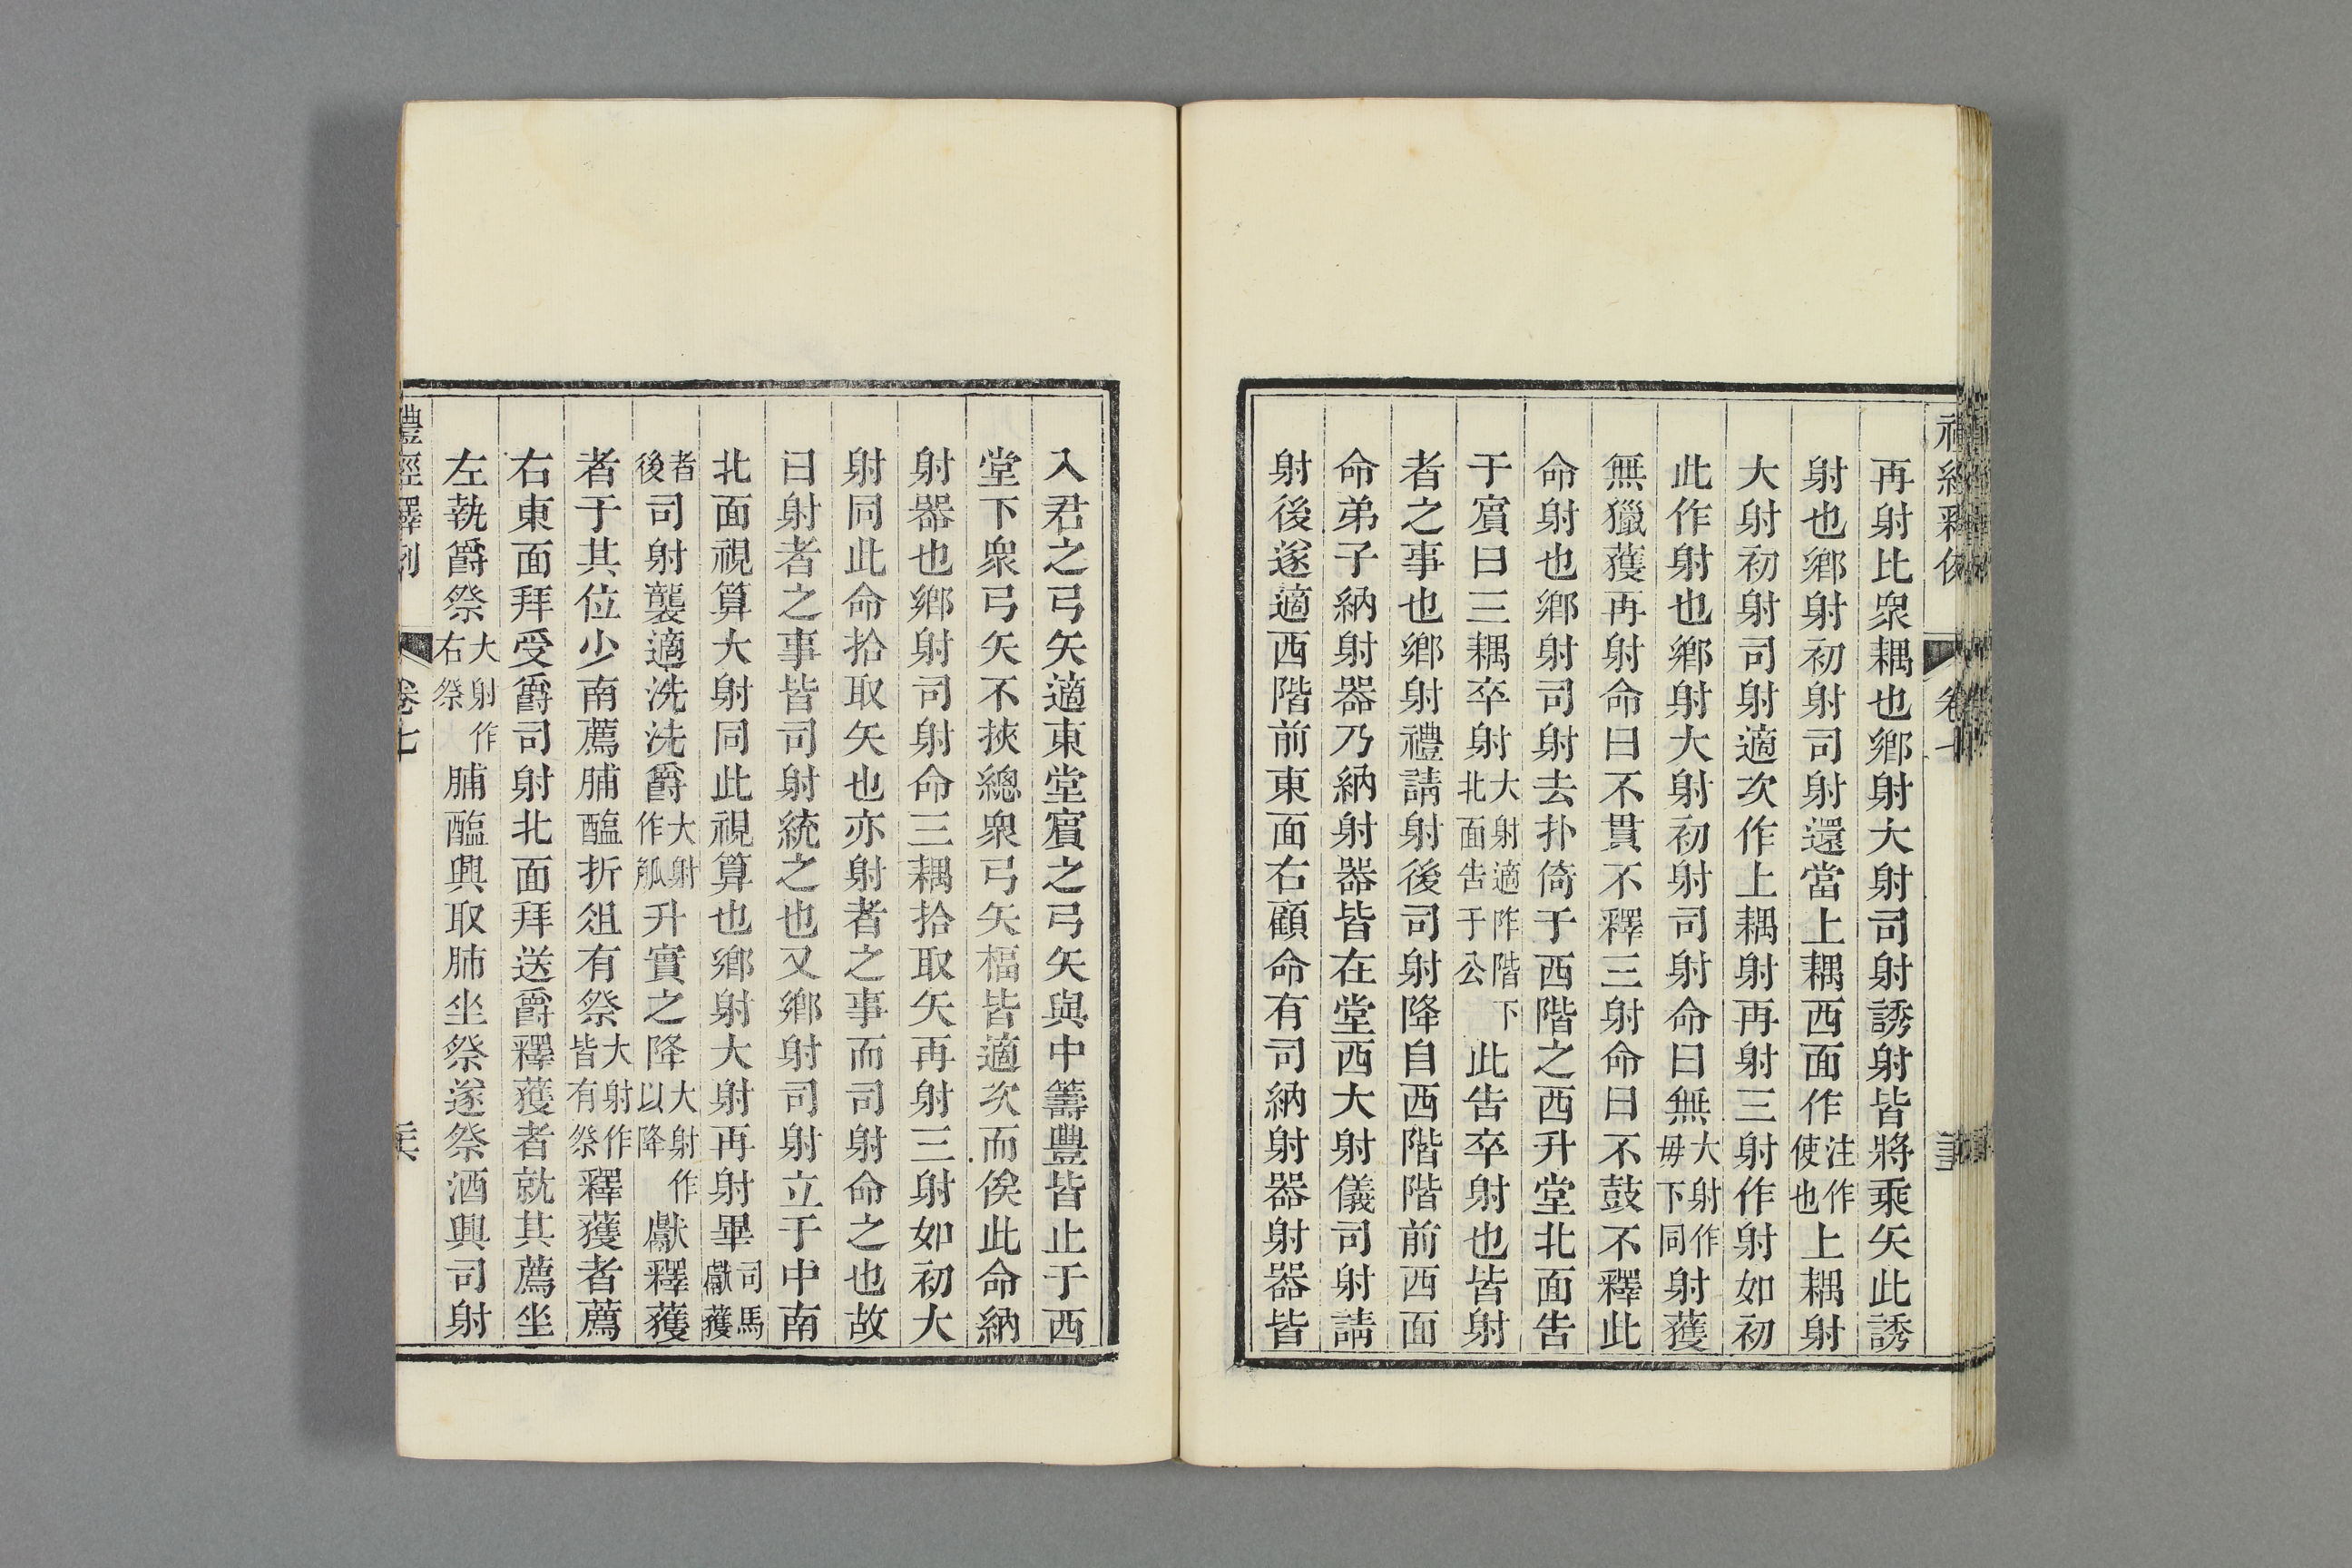 再射比衆耦也鄉射大射司射誘射皆將乘矢此誘
射也鄉射初射司射還當上耦西面作注作使也上耦射
大射初射司射適次作上耦射再射三射作射如初
此作射也鄉射大射初射司射命曰無大射作毋下同射獲
無獵獲再射命曰不貫不釋三射命曰不鼓不釋此
命射也鄉射司射去扑倚于西階之西升堂北面告
于賓曰三耦卒射大射適阼階下北面告于公此告卒射也皆射
者之事也鄉射禮請射後司射降自西階階前西面
命弟子納射器乃納射器皆在堂西大射儀司射請
射後遂適西階前東面右顧命有司納射器射器皆
入君之弓矢適東堂賓之弓矢與中籌豐皆止于西
堂下衆弓矢不挾總衆弓矢楅皆適次而俟此命納
射器也鄉射司射命三耦拾取矢再射三射如初大
射同此命拾取矢也亦射者之事而司射命之也故
曰射者之事皆司射統之也又鄉射司射立于中南
北面視算大射同此視算也鄉射大射再射畢司馬獻獲
者後司射襲適洗洗爵大射作觚升實之降大射作以降獻釋獲
者于其位少南薦脯醢折俎有祭大射作皆有祭釋獲者薦
右東面拜受爵司射北面拜送爵釋獲者就其薦坐
左執爵祭大射作右祭脯醢興取肺坐祭遂祭酒興司射
禮經釋例
卷七